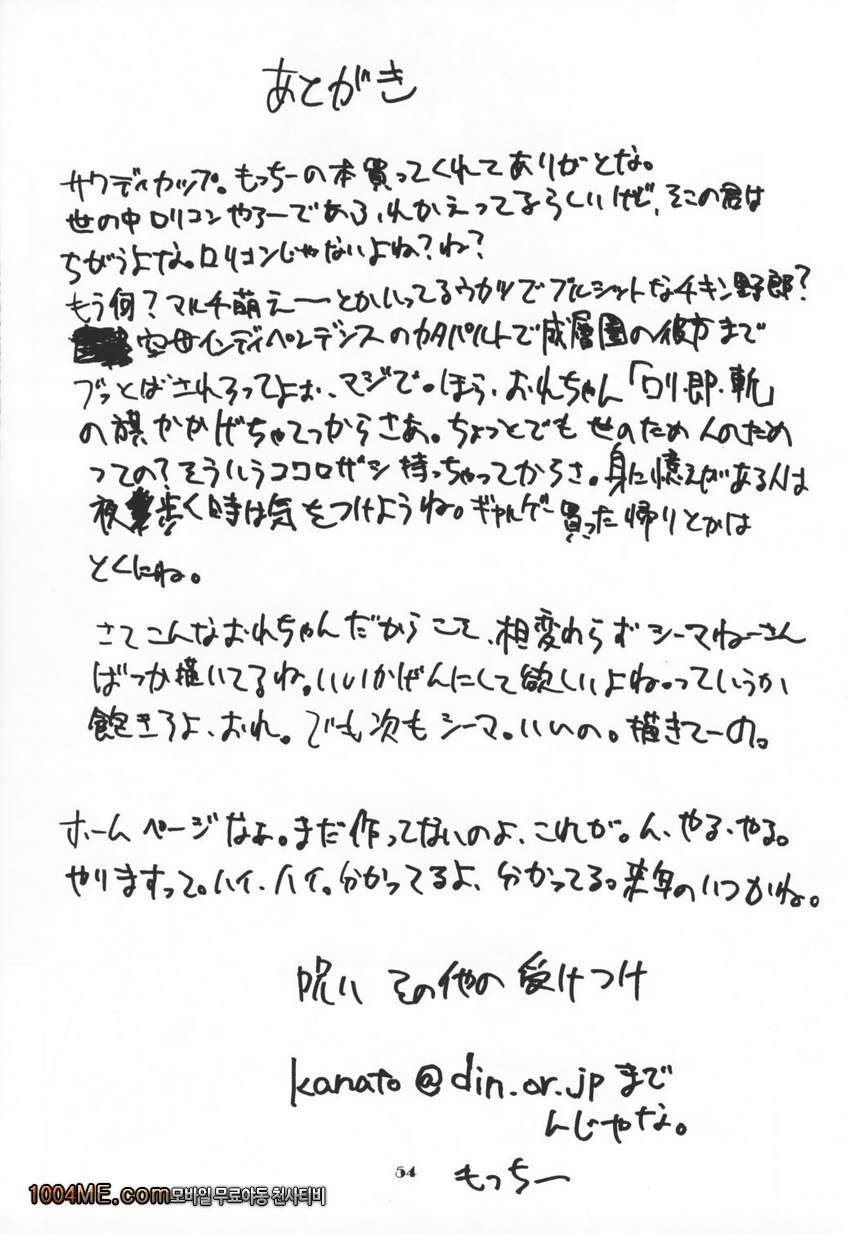 あとがき
サウディカップ。もっちーの本買ってくれてありがとな。
世の中ロリコンやろーであふれかえってるらしいけど、そこの君は
ちがうよな。ロリコンじゃないよね?ね?
もう何?マルチ萌えーとかいってるウカツでブルシットなチキン野郎?
空母インディペンデンスのカタパルトで成層圏の彼方まで
ブッとばされろってよぉ、マジで。ほら、おれちゃん「ロリ・即・斬」
の旗かかげちゃてっからさあ。ちょっとでも世のため人のため
っての?そういうココロザシ持っちゃってからさ。身に憶えがある人は
夜歩く時は気をつけようね。ギャルゲー買った帰りとかは
とくにね。
さてこんなおれちゃんだからこそ、相変わらずシーマねーさん
ばっか描いてるね。いいかげんにして欲しいよね。っていうか
飽きろよ、おれ。でも次もシーマ。いいの。描きてーの。
ホームページなぁ。まだ作ってないのよ、これが。ん、やる、やる。
やりますって。ハイ、ハイ。分かってるよ、分かってる。来年のいつかね。
呪い その他の 受けつけ
kanato@din.or.jpまで
んじゃな。
54 もっちー
1004ME.com모바일 무료야동 천사티비